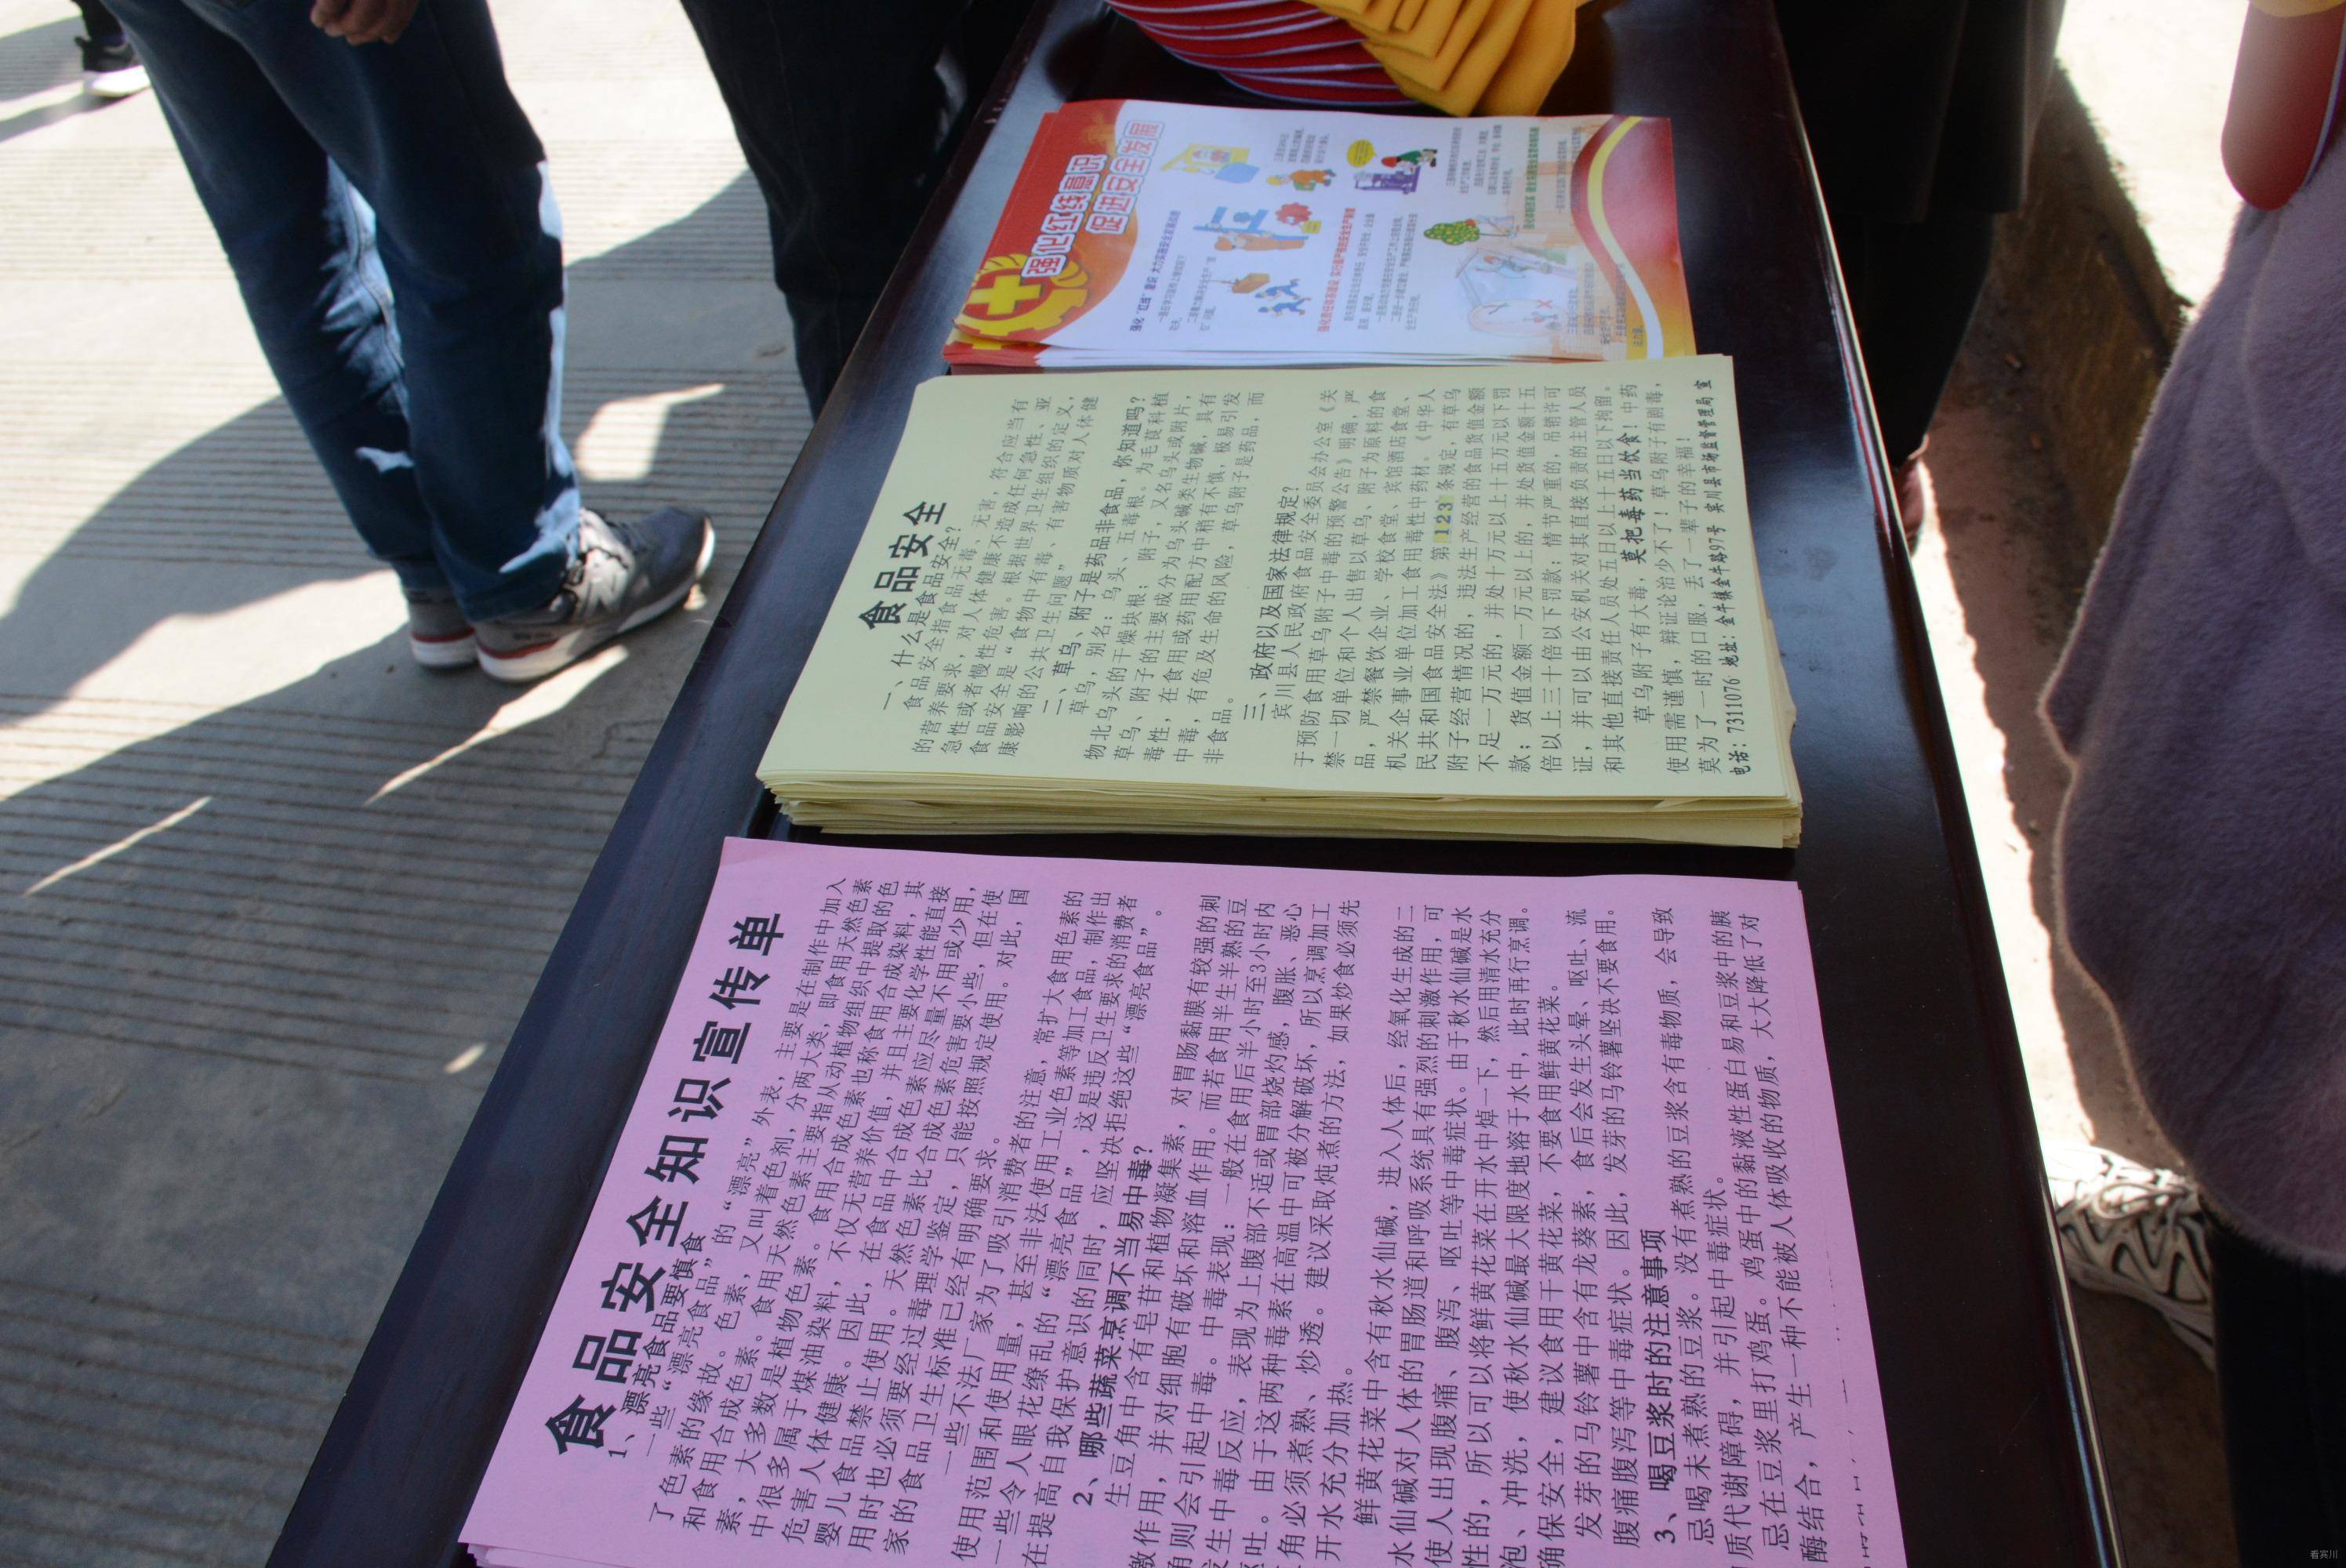 强化红线意识
促进安全发展
强化“红线”意识 大力实施安全发展战略
食品安全
一、什么是食品安全?
食品安全指食品无毒、无害，符合应当有
的营养要求，对人体健康不造成任何急性、亚
急性或者慢性危害。根据世界卫生组织的定义，
食品安全是“食物中有毒、有害物质对人体健
康影响的公共卫生问题”
二、草乌、附子是药品非食品，你知道吗?
草乌，别名：乌头、五毒根。为毛茛科植
物北乌头的干燥块根；附子，又名乌头或附片，
草乌、附子的主要成分为乌头碱类生物碱，具有
毒性，在食用或药用配方中稍有不慎，极易引发
中毒，有危及生命的风险，草乌附子是药品，而
非食品。
三、政府以及国家法律规定?
宾川县人民政府食品安全委员会办公室《关
于预防食用草乌附子中毒的预警公告》明确，严
禁一切单位和个人出售以草乌、附子为原料的食
品，严禁餐饮企业、学校食堂、宾馆酒店食堂、
机关企事业单位加工食用毒性中药材。《中华人
民共和国食品安全法》第123条规定，有草乌
附子经营情况的，违法生产经营的食品货值金额
不足一万元的，并处十万元以上十五万元以下罚
款；货值金额一万元以上的，并处货值金额十五
倍以上三十倍以下罚款；情节严重的，吊销许可
证，并可以由公安机关对其直接负责的主管人员
和其他直接责任人员处五日以上十五日以下拘留。
草乌附子有大毒，莫把毒药当饮食！中药
使用需谨慎，辩证论治少不了！草乌附子有剧毒，
莫为了一时的口服，丢了一辈子的幸福！
电话：7311076 地址：金牛镇金牛路97号 宾川县市场监督管理局 宣
食品安全知识宣传单
1、漂亮食品要慎食
一些“漂亮食品”的“漂亮”外表，主要是在制作中加入
了色素的缘故。色素，又叫着色剂，分两大类，即食用天然色素
和食用合成色素。食用天然色素主要指从动植物组织中提取的色
素，大多数是植物色素。食用合成色素也称食用合成染料，其
中很多属于煤油染料，不仅无营养价值，并且主要化学性能直接
危害人体健康。因此，在食品中合成色素应尽量不用或少用，
婴儿食品禁止使用。天然色素比合成色素危害要小些，但在使
用时也必须要经过毒理学鉴定，只能按照规定使用。对此，国
家的食品卫生标准已经有明确要求。
一些不法厂家为了吸引消费者的注意，常扩大食用色素的
使用范围和使用量，甚至非法使用工业色素等加工食品，制作出
一些令人眼花缭乱的“漂亮食品”，这是违反卫生要求的消费者
在提高自我保护意识的同时，应坚决拒绝这些“漂亮食品”。
2、哪些蔬菜烹调不当易中毒?
生豆角中含有皂苷和植物凝集素，对胃肠黏膜有较强的刺
激作用，并对细胞有破坏和溶血作用。而若食用半生半熟的豆
角则会引起中毒。中毒表现：一般在食用后半小时至3小时内
发生中毒反应，表现为上腹部不适或胃部烧灼感，腹胀、恶心
呕吐。由于这两种毒素在高温中可被分解破坏，所以烹调加工
角必须煮熟、炒透。建议采取炖煮的方法，如果炒食必须先
开水充分加热。
鲜黄花菜中含有秋水仙碱，进入人体后，经氧化生成的二
水仙碱对人体的胃肠道和呼吸系统具有强烈的刺激作用，可
使人出现腹痛、腹泻、呕吐等中毒症状。由于秋水仙碱是水
性的，所以可以将鲜黄花菜在开水中焯一下，然后用清水充分
泡、冲洗，使秋水仙碱最大限度地溶于水中，此时再行烹调。
确保安全，建议食用干黄花菜，不要食用鲜黄花菜。
发芽的马铃薯中含有龙葵素，食后会发生头晕、呕吐、流
腹痛腹泻等中毒症状。因此，发芽的马铃薯坚决不要食用。
3、喝豆浆时的注意事项
忌喝未煮熟的豆浆。没有煮熟的豆浆含有毒物质，会导致
质代谢障碍，并引起中毒症状。
忌在豆浆里打鸡蛋。鸡蛋中的黏液性蛋白易和豆浆中的胰
酶结合，产生一种不能被人体吸收的物质，大大降低了对
看宾川